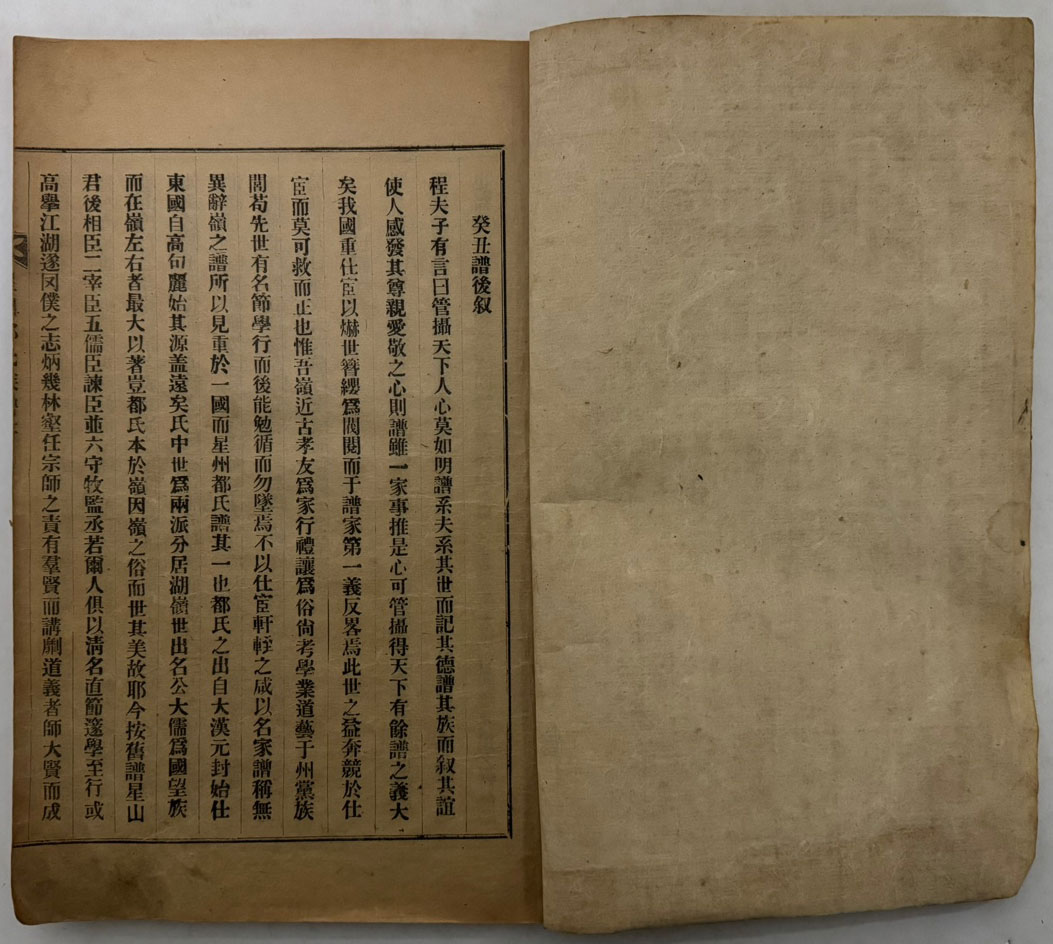 癸丑譜後叙
程夫子有言曰管攝天下人心莫如明譜系夫系其世而記其德譜其族而叙其誼
使人感發其尊親愛敬之心則譜雖一家事推是心可管攝得天下有餘譜之義大
矣我國重仕宦以爀世簪纓爲閥閱而于譜家第一義反畧焉此世之益奔競於仕
宦而莫可救而正也惟吾嶺近古孝友爲家行禮讓爲俗尙考學業道藝于州黨族
閭苟先世有名節學行而後能勉循而勿墜焉不以仕宦軒輊之咸以名家譜稱無
異辭嶺之譜所以見重於一國而星州都氏譜其一也都氏之出自大漢元封始仕
東國自高句麗始其源盖遠矣氏中世爲兩派分居湖嶺世出名公大儒爲國望族
而在嶺左右者最大以著豈都氏本於嶺因嶺之俗而世其美故耶今按舊譜星山
君後相臣二宰臣五儒臣諫臣並六守牧監丞若爾人俱以淸名直節邃學至行或
高擧江湖遂罔僕之志炳幾林壑任宗師之責有羣賢而講劘道義者師大賢而成